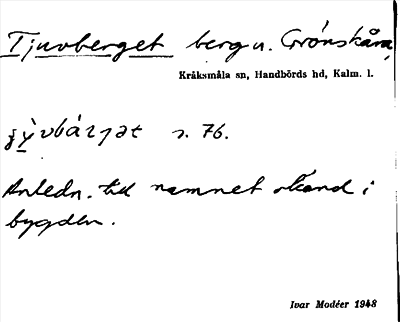 Tjuvberget berg n. Grönskåra,
Kråksmåla sn, Handbörds hd, Kalm. l.
s. 76.
Anledn. till namnet okänd i
bygden.
Ivar Modéer 1948